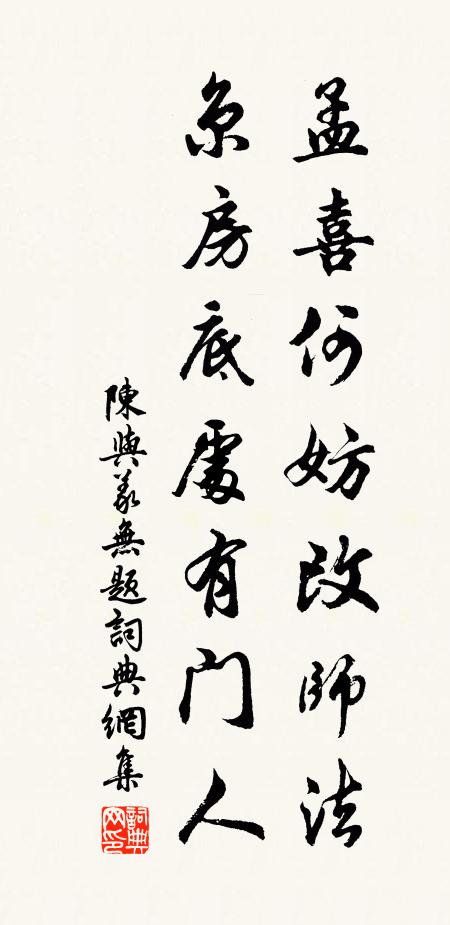 孟喜何妨改師法
京房底處有門人
陳與義無題詞典網集
詞典网印